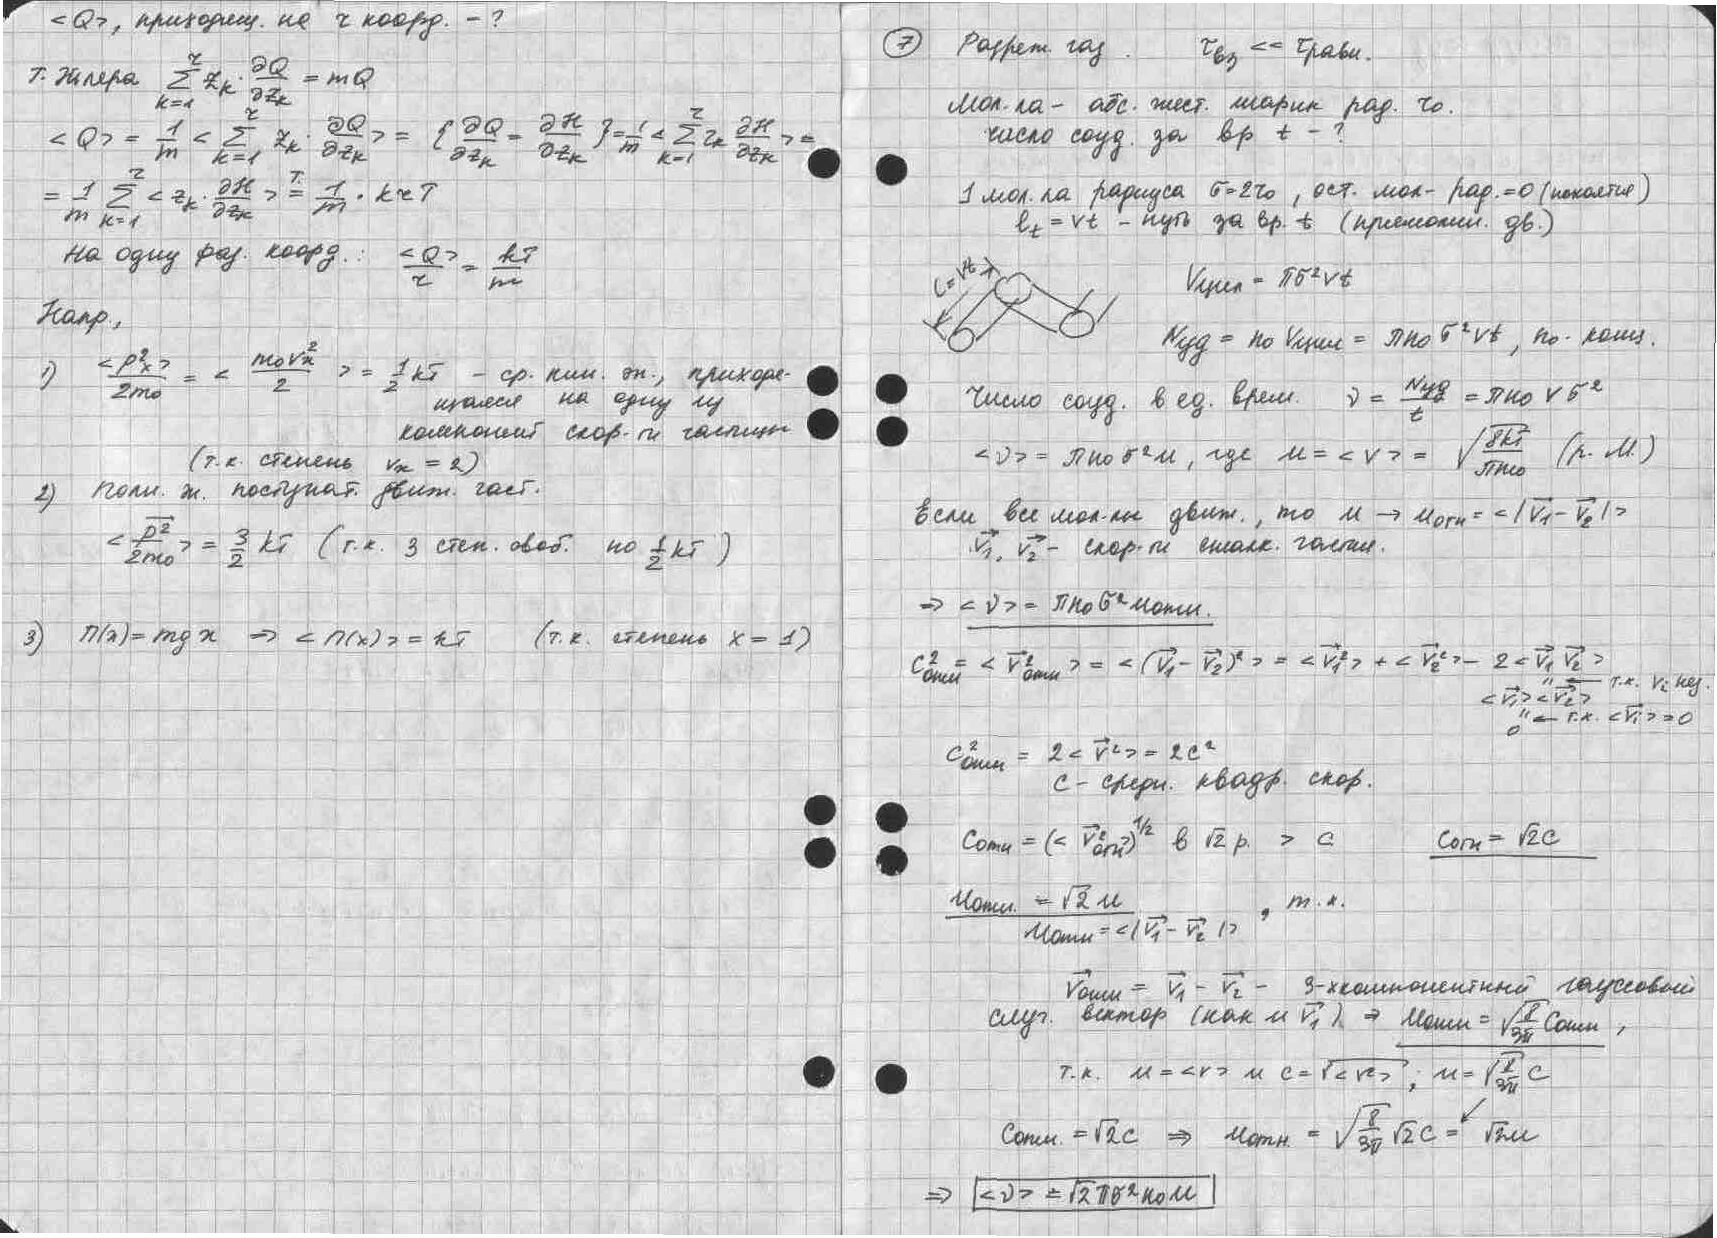 <Q>, приходящ. на r коорд. - ?
Т. Эйлера $\sum_{k=1}^{r} z_k \cdot \frac{\partial Q}{\partial z_k} = mQ$
$<Q> = \frac{1}{m} < \sum_{k=1}^{r} z_k \cdot \frac{\partial Q}{\partial z_k} > = \{ \frac{\partial Q}{\partial z_k} = \frac{\partial H}{\partial z_k} \} = \frac{1}{m} < \sum_{k=1}^{r} z_k \frac{\partial H}{\partial z_k} > =$
$= \frac{1}{m} \sum_{k=1}^{r} < z_k \cdot \frac{\partial H}{\partial z_k} > \overset{т.}{=} \frac{1}{m} \cdot k r T$
На одну фаз. коорд.: $\frac{<Q>}{r} = \frac{kT}{m}$
Напр.,
1) $\frac{<p_x^2>}{2m_0} = < \frac{m_0 v_x^2}{2} > = \frac{1}{2} kT$ - ср. кин. эн., приходя-
щаяся на одну из
компонент скор-ти частицы
(т.к. степень $v_x = 2$)
2) Полн. эн. поступат. движ. част.
$< \frac{\vec{p}^2}{2m_0} > = \frac{3}{2} kT$ (т.к. 3 степ. своб. по $\frac{1}{2} kT$)
3) П(x) = mgx ⇒ <П(x)> = kT (т.к. степень x = 1)
7 Разреж. газ. $\tau_{вз} << \tau_{равн.}$
Мол-ла - абс. жест. шарик рад. $r_0$.
число соуд. за вр t - ?
1 мол-ла радиуса σ = 2r₀, ост. мол- рад. = 0 (покоятся)
$l_t = vt$ - путь за вр. t (прямолин. дв.)
l = vt
$V_{цил} = \pi σ^2 vt$
$N_{уд} = n_0 V_{цил} = \pi n_0 σ^2 vt$, n₀ - конц.
Число соуд. в ед. врем. $ν = \frac{N_{уд}}{t} = \pi n_0 v σ^2$
$<ν> = \pi n_0 σ^2 u$, где $u = <v> = \sqrt{\frac{8kT}{\pi m_0}}$ (р. М.)
Если все мол-лы движ., то $u → u_{отн} = <|\vec{v_1} - \vec{v_2}|>$
$\vec{v_1}, \vec{v_2}$ - скор-ти сталк. частиц.
⇒ $<ν> = \pi n_0 σ^2 u_{отн}$.
$c_{отн}^2 = <\vec{v}_{отн}^2> = <(\vec{v_1} - \vec{v_2})^2> = <\vec{v_1}^2> + <\vec{v_2}^2> - 2<\vec{v_1} \vec{v_2}>$
" ← т.к. $v_i$ нез.
$<\vec{v_1}><\vec{v_2}>$
" ← т.к. $<\vec{v_i}> = 0$
0
$c_{отн}^2 = 2<\vec{v}^2> = 2c^2$
c - средн. квадр. скор.
$c_{отн} = (<\vec{v}_{отн}^2>)^{1/2}$ в $\sqrt{2}$ р. > c $c_{отн} = \sqrt{2} c$
$u_{отн.} = \sqrt{2} u$, т.к.
$u_{отн} = <|\vec{v_1} - \vec{v_2}|>$
$\vec{v}_{отн} = \vec{v_1} - \vec{v_2}$ - 3-хкомпонентный гауссовый
случ. вектор (как и $\vec{v_1}$) ⇒ $u_{отн} = \sqrt{\frac{8}{3\pi}} c_{отн}$,
т.к. $u = <v>$ и $c = \sqrt{<v^2>}$; $u = \sqrt{\frac{8}{3\pi}} c$
$c_{отн.} = \sqrt{2} c$ ⇒ $u_{отн.} = \sqrt{\frac{8}{3\pi}} \sqrt{2} c = \sqrt{2} u$
⇒ $<ν> = \sqrt{2} \pi σ^2 n_0 u$